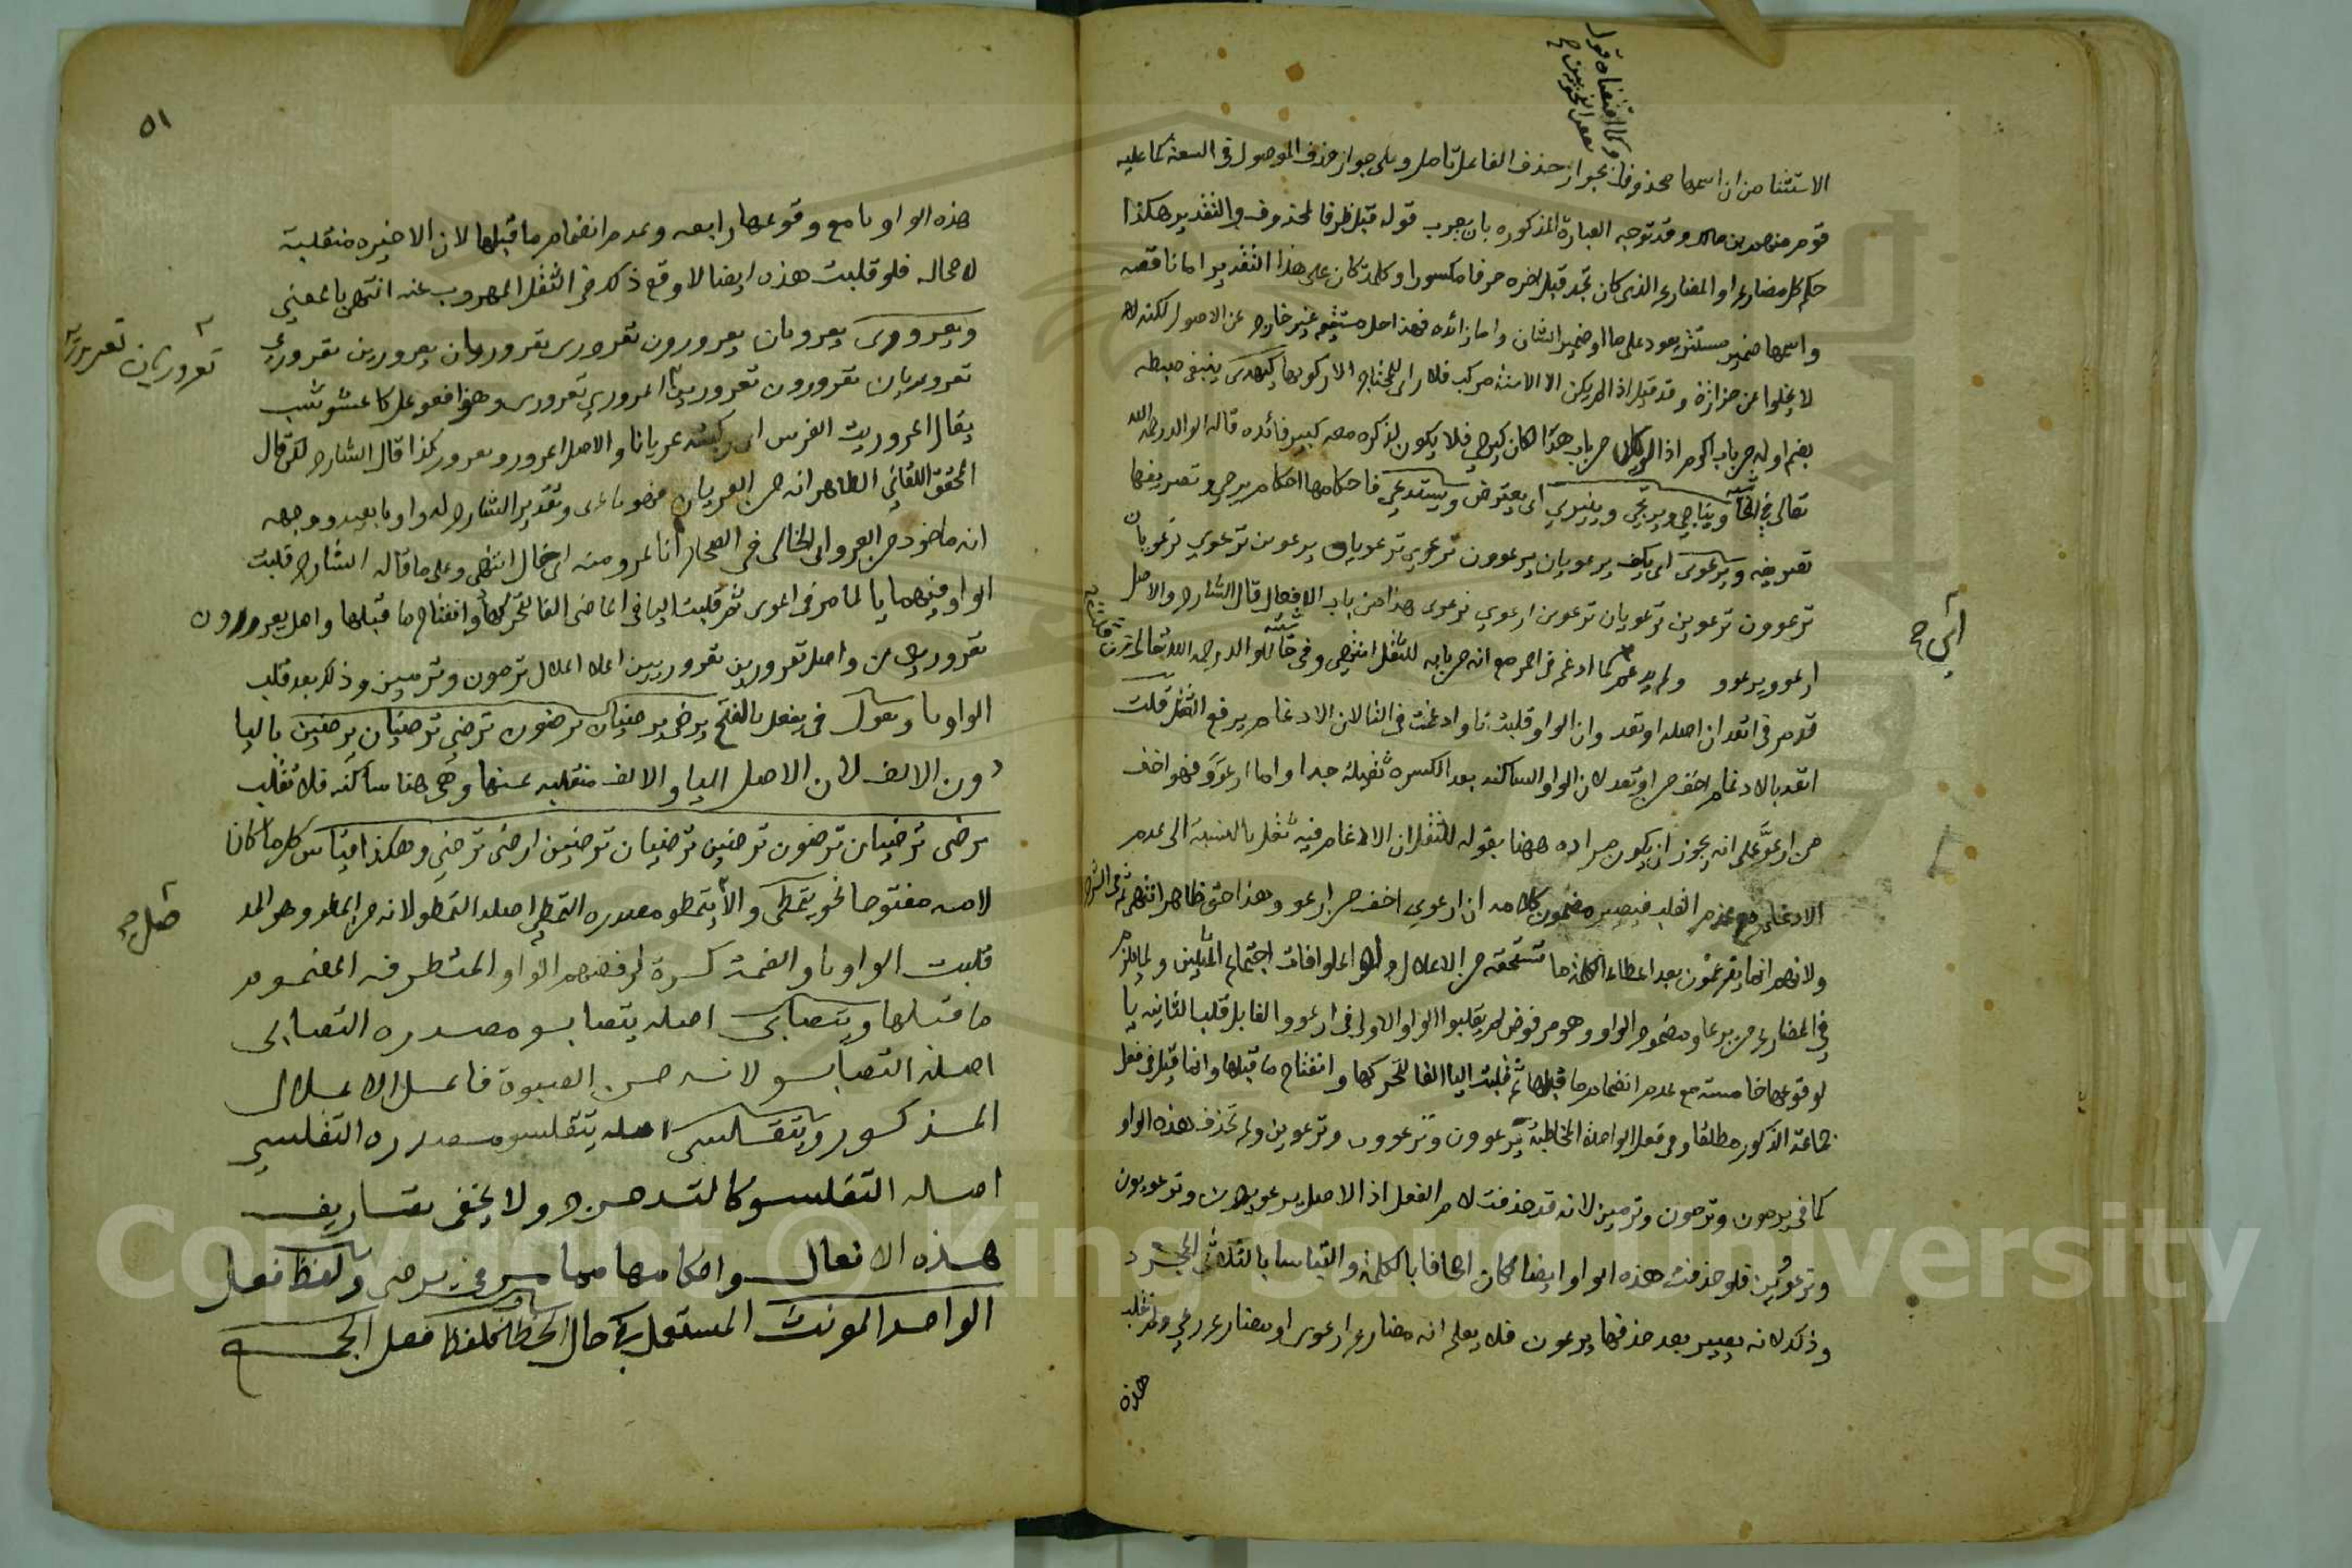 وكما اقتضاه قول
بعض النحويين ح
الاستثنا من ان اسمها محذوف فانه يجوز حذف الفاعل تامل وعلى جواز حذف الموصول في السعة كما عليه
قوم منهم ابن مالك وقد توجه العبارة المذكوره بان يعرب قوله قبل ظرفا لمحذوف والتقدير هكذا
حكم كل مضارع او المضارع الذى كان تجد قبل اخره حرفا مكسورا وكلمة كان على هذا التقدير اما ناقصه
واسمها ضمير مستتر يعود على ما او ضمير الشان واما زائده فهذا حل مستقيم غير خارج عن الاصول لكنه
لا يخلوا عن حزازة وقد قيل اذ لم يكن الا الاسنة مركب فلا راى للمحتاج الا ركوبها كيهدى ينبغى ضبطه
بضم اوله من باب اكرم اذ لو كان من باب هدا لكان كيرمي فلا يكون لذكره معه كبير فائده قاله الوالد رحمه الله
تعالى في الحاشية ويناجي ويرتجي وينبري اى يعترض ويستدعي فاحكامها احكام يرمي وتصريفها
تصريفه ويرعوى اى يكف يرعويان يرعوون ترعوي ترعويان يرعوين ترعوي ترعويان
ترعوون ترعوين ترعويان ترعوين ارعوي نرعوى هذا من باب الافعلال قال الشارح والاصل
ارعوو يرعوو ولم يدغم كما ادغم في احمر مع انه من بابه للثقل انتهى وفي حاشية الوالد رحمه الله تعالى
قد مر في اتعد ان اصله اوتعد وان الواو قلبت تا وادغمت فى التا لان الادغام يرفع الثقل قلت
اتعد بالادغام اخف من اوتعد لان الواو الساكنه بعد الكسره ثقيلة جدا واما ارعوو فهو اخف
من ارعوّ على انه يجوز ان يكون مراده ههنا بقوله للثقل ان الادغام فيه ثقل بالنسبة الى عدم
الادغام مع عدم القلب فيصير مضمون كلامه ان ارعوي اخف من ارعو وهذا حق ظاهر انتهى
ولانهم انما يدغمون بعد اعطاء الكلمة ما تستحقه من الاعلال ولما اعلوا فات اجتماع المثلين ولما يلزم
في المضارع من يرعاو مضموم الواو وهو مرفوض لم يقلبوا الواو الاولى فى ارعوو الفا بل قلب الثانيه يا
لوقوعها خامسة مع عدم انضمام ما قبلها ثم قلبت اليا الفا لتحركها وانفتاح ما قبلها وانما قيل في فعل
جماعة الذكور مطلقا وفي فعل الواحدة المخاطبة يرعوون وترعوون وترعوين ولم تحذف هذه الواو
كما في يرمون وترمون وترمين لانه قد حذفت لام الفعل اذ الاصل يرعويون وترعويون
وترعويين فلو حذفت هذه الواو ايضا لكان اجحافا بالكلمة والتباسا بالثلاثى المجرد
وذلك لانه يصير بعد حذفها يرعون فلا يعلم انه مضارع ارعوى او مضارع رعى ولم تقلب
هذه
اي ح
٥١
هذه الواو يا مع وقوعها رابعه وعدم انضمام ما قبلها لان الاخيره منقلبة
لا محاله فلو قلبت هذه ايضا لوقع ذلك في الثقل المهروب عنه انتهى بالمعنى
ويعرورى يعروريان يعرورون تعرورى تعروريان يعرورين تعروري
تعروريان تعرورون تعرورين اعروري نعرورى وهو افعوعل كاعشوشب
يقال اعروريت الفرس اى ركبته عريانا والاصل اعرورو يعرورو كذا قال الشارح لكن قال
المحقق اللقاني الظاهر انه من العريان فهو يا عرى وتقدير الشارح له واويا بعيد ووجهه
انه ماخوذ من العرو اى الخالى فى الصحاح انا عرو منه اى خال انتهى وعلى ما قاله الشارح قلبت
الواو فيهما يا لما مر فى ارعوى ثم قلبت اليا فى الماضى الفا لتحركها وانفتاح ما قبلها واصل يعرورون
تعروريون واصل تعرورين تعروريين اعلا اعلال ترمون وترمين وذلك بعد قلب
الواو يا وتقول في يفعل بالفتح يرضى يرضيان يرضون ترضى ترضيان يرضين باليا
دون الالف لان الاصل اليا والالف منقلبه عنها وهى هنا ساكنه فلا تقلب
ترضى ترضيان ترضون ترضين ترضيان ترضين ارضى نرضى وهكذا قياس كل ما كان
لامه مفتوحا نحو يتمطى والاصل يتمطو مصدره التمطي اصله التمطو لانه من المطو وهو المد
قلبت الواو يا والضمة كسرة لرفضهم الواو المتطرفه المضموم
ما قبلها ويتصابى اصله يتصابو مصدره التصابى
اصله التصابو لانه من الصبوة فاعل الاعلال
المذكور ويتقلسى اصله يتقلسو مصدره التقلسي
اصله التقلسو كالتدحرج ولا يخفى تصاريف
هذه الافعال واحكامها مما مر في يرضى ولفظ فعل
الواحد المونث المستعمل في حال الخطاب كلفظ فعل الجمع
تعروريان تعرورين
صل ح